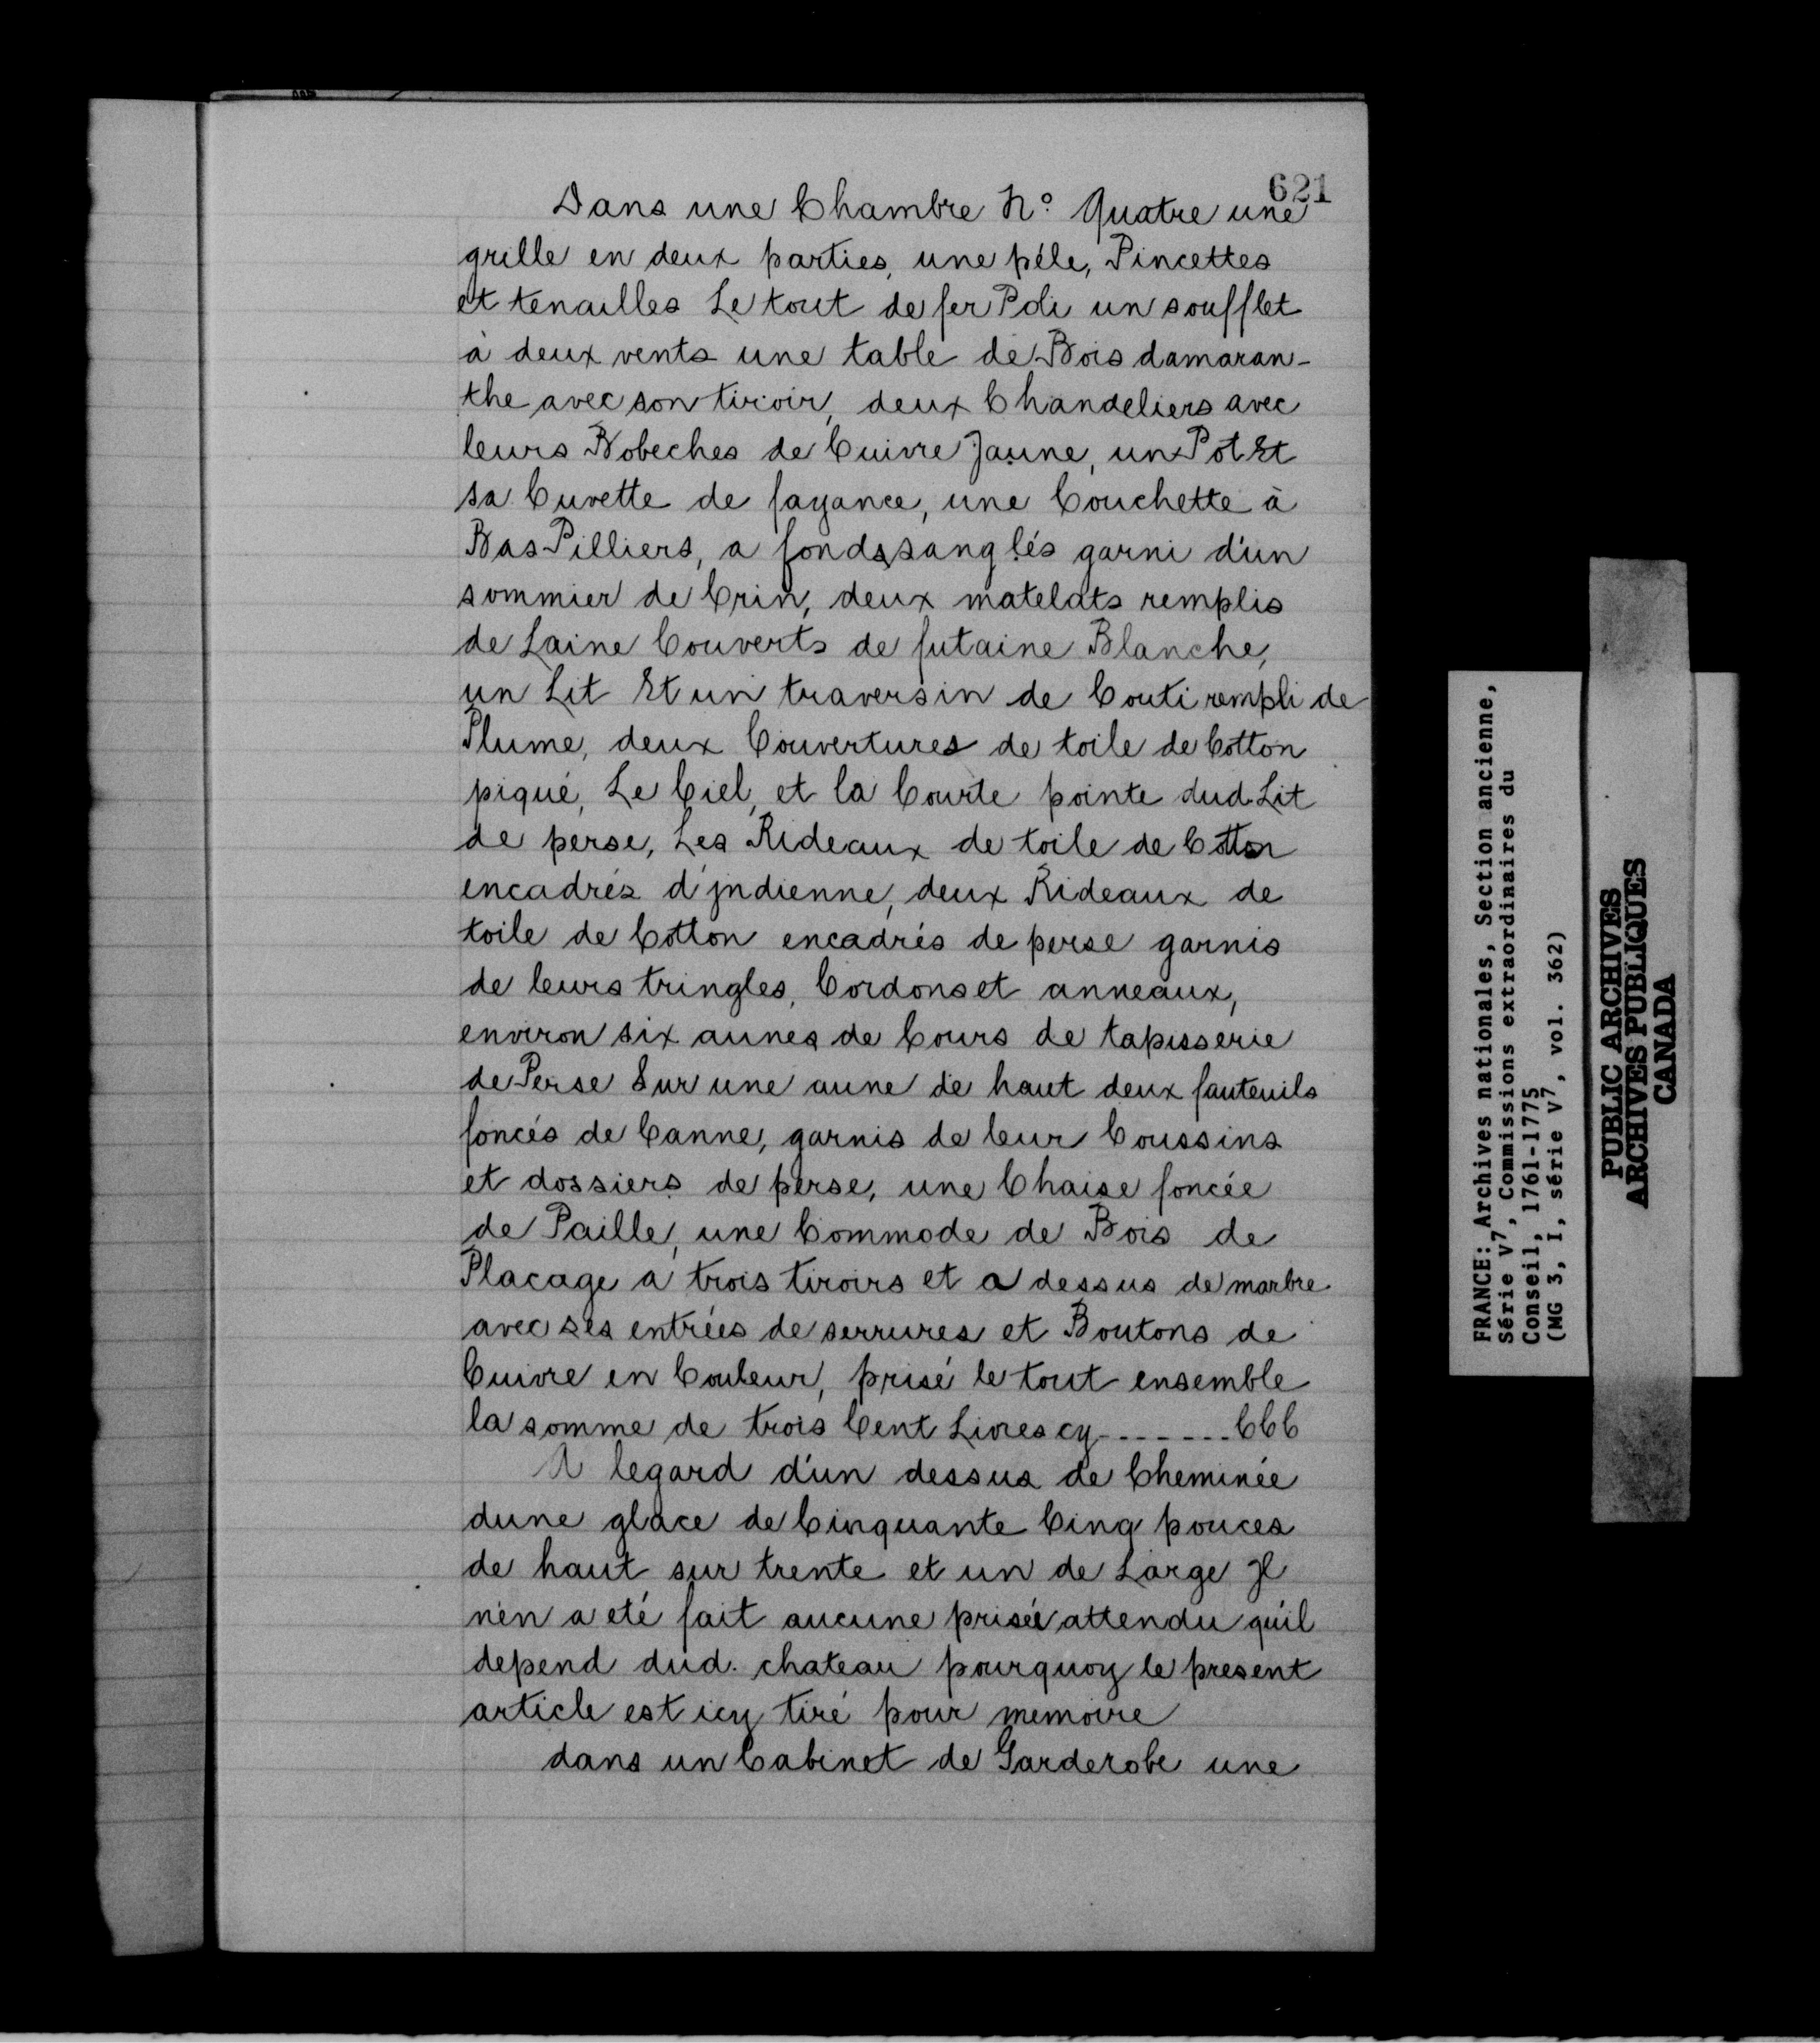 621
Dans une Chambre N.° Quatre une
grille en deux parties, une péle, Pincettes
et tenailles Le tout de fer Poli un soufflet
à deux vents une table de Bois damaran-
the avec son tiroir, deux Chandeliers avec
leurs Bobeches de Cuivre Jaune, un Pot Et
sa Cuvette de fayance, une Couchette à
Bas Pilliers, a fonds sanglés garni d'un
sommier de Crin, deux matelats remplis
de Laine Couverts de futaine Blanche,
un Lit Et un traversin de Couti rempli de
Plume, deux Couvertures de toile de Cotton
piqué, Le Ciel, et la Courte pointe dud. Lit
de perse, Les Rideaux de toile de Cotton
encadrés d'jndienne, deux Rideaux de
toile de Cotton encadrés de perse garnis
de leurs tringles, Cordons et anneaux,
environ six aunes de Cours de tapisserie
de Perse Sur une aune de haut deux fauteuils
foncés de Canne, garnis de leur Coussins
et dossiers de perse, une Chaise foncée
de Paille, une Commode de Bois de
Placage a trois tiroirs et a dessus de marbre
avec ses entrées de serrures et Boutons de
Cuivre en Couleur, prisé le tout ensemble
la somme de trois Cent Livres cy-------CCC
A legard d'un dessus de Cheminée
dune glace de Cinquante Cinq pouces
de haut sur trente et un de Large Jl
n'en a eté fait aucune prisée attendu qu'il
depend dud. chateau pourquoy le present
article est icy tiré pour memoire
dans un Cabinet de Garderobe une
FRANCE: Archives nationales, Section ancienne,
Série V7, Commissions extraordinaires du
Conseil, 1761-1775
(MG 3, I, série V7, vol. 362)
PUBLIC ARCHIVES
ARCHIVES PUBLIQUES
CANADA